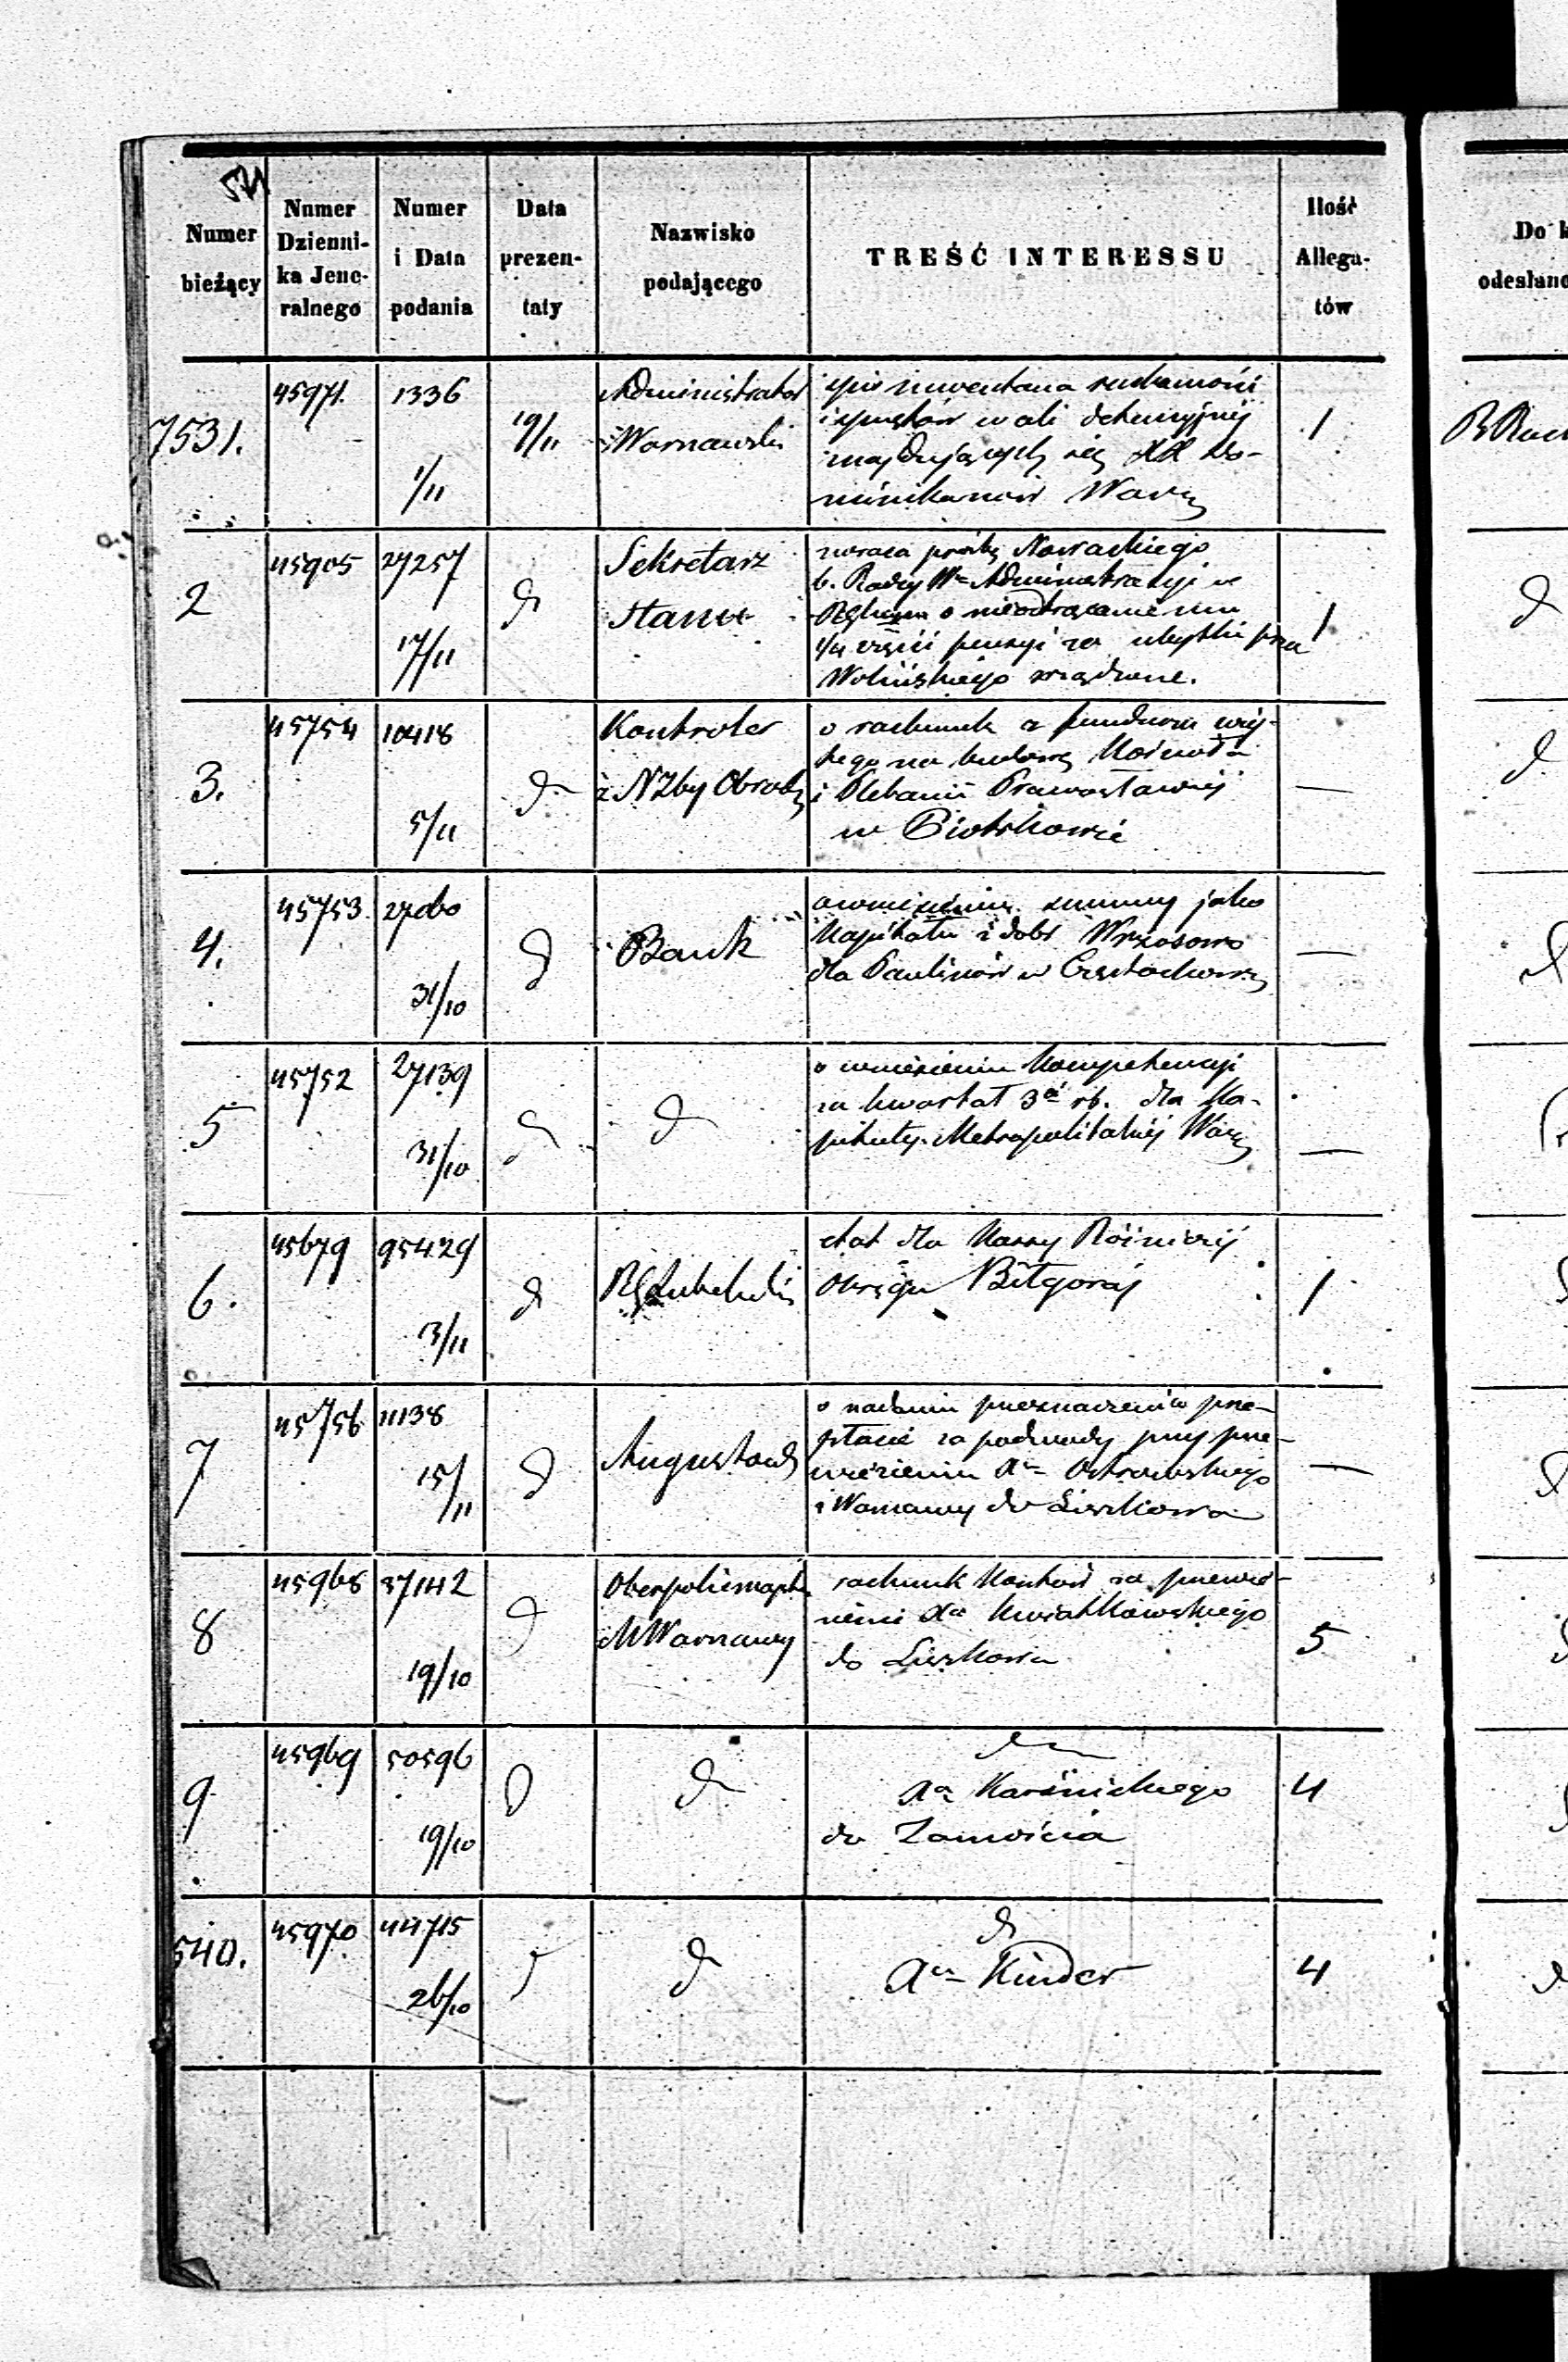 521
Numer
bieżący
Numer
Dzienni-
ka Jene-
ralnego
Numer
i Data
podania
Data
prezen-
taty
Nazwisko
podającego
TREŚĆ INTERESSU
Ilość
Allega-
tów
Do k
odesłano
7531.
45971.
1336
1/11
19/11
Administrator
Warszawski
spis inwentarza ruchomości
znajdujących się XX Do-
minikanów Warsz
1
2
45905
27257
17/11
d
Sekretarz
Stanu
zwraca prośbę Nowackiego
b. Radcy Administracyi w
o nieodtrącanie mu
1/4 części pensyi za ubytki przez
Wolińskiego zrządzone.
1
d
3.
45754
10418
5/11
d
Kontroler
z N Izby Obrach
o rachunek z funduszu
tego na budowę Kościoła
i Plebanii Prawosławnej
w Piotrkowie
—
d
4.
45753.
27060
31/10
d
Bank
o wniesieniu summy jako
Kapitału z dóbr Wrzosowo
dla Paulinów w Częstochowie
—
5
45752
27139
31/10
d
d
o wniesieniu Kompetencyi
za kwartał 3ci rb. dla Ka-
pituły Metropolitalnej Warsz
—
6.
45679
95429
3/11
d
RG Lubelski
etat dla Kassy
Okręgu Biłgoraj
1
7
45756
11138
15/11
d
Augustows
o nadaniu przeznaczenia
za podwody przy prze-
wiezieniu Xa Ostrowskiego
z Warszawy do Liszkowa
—
8
45968
37142
19/10
d
Oberpolicmajster
M Warszawy
rachunek Kosztów za przewie-
zienie Xa Kwiatkowskiego
do Liszkowa
5
9
45969
50596
19/10
d
d
d
Xa Karśnickiego
do Zamościa
4
540.
45970
44715
26/10
d
d
d
Xa Kinder
4